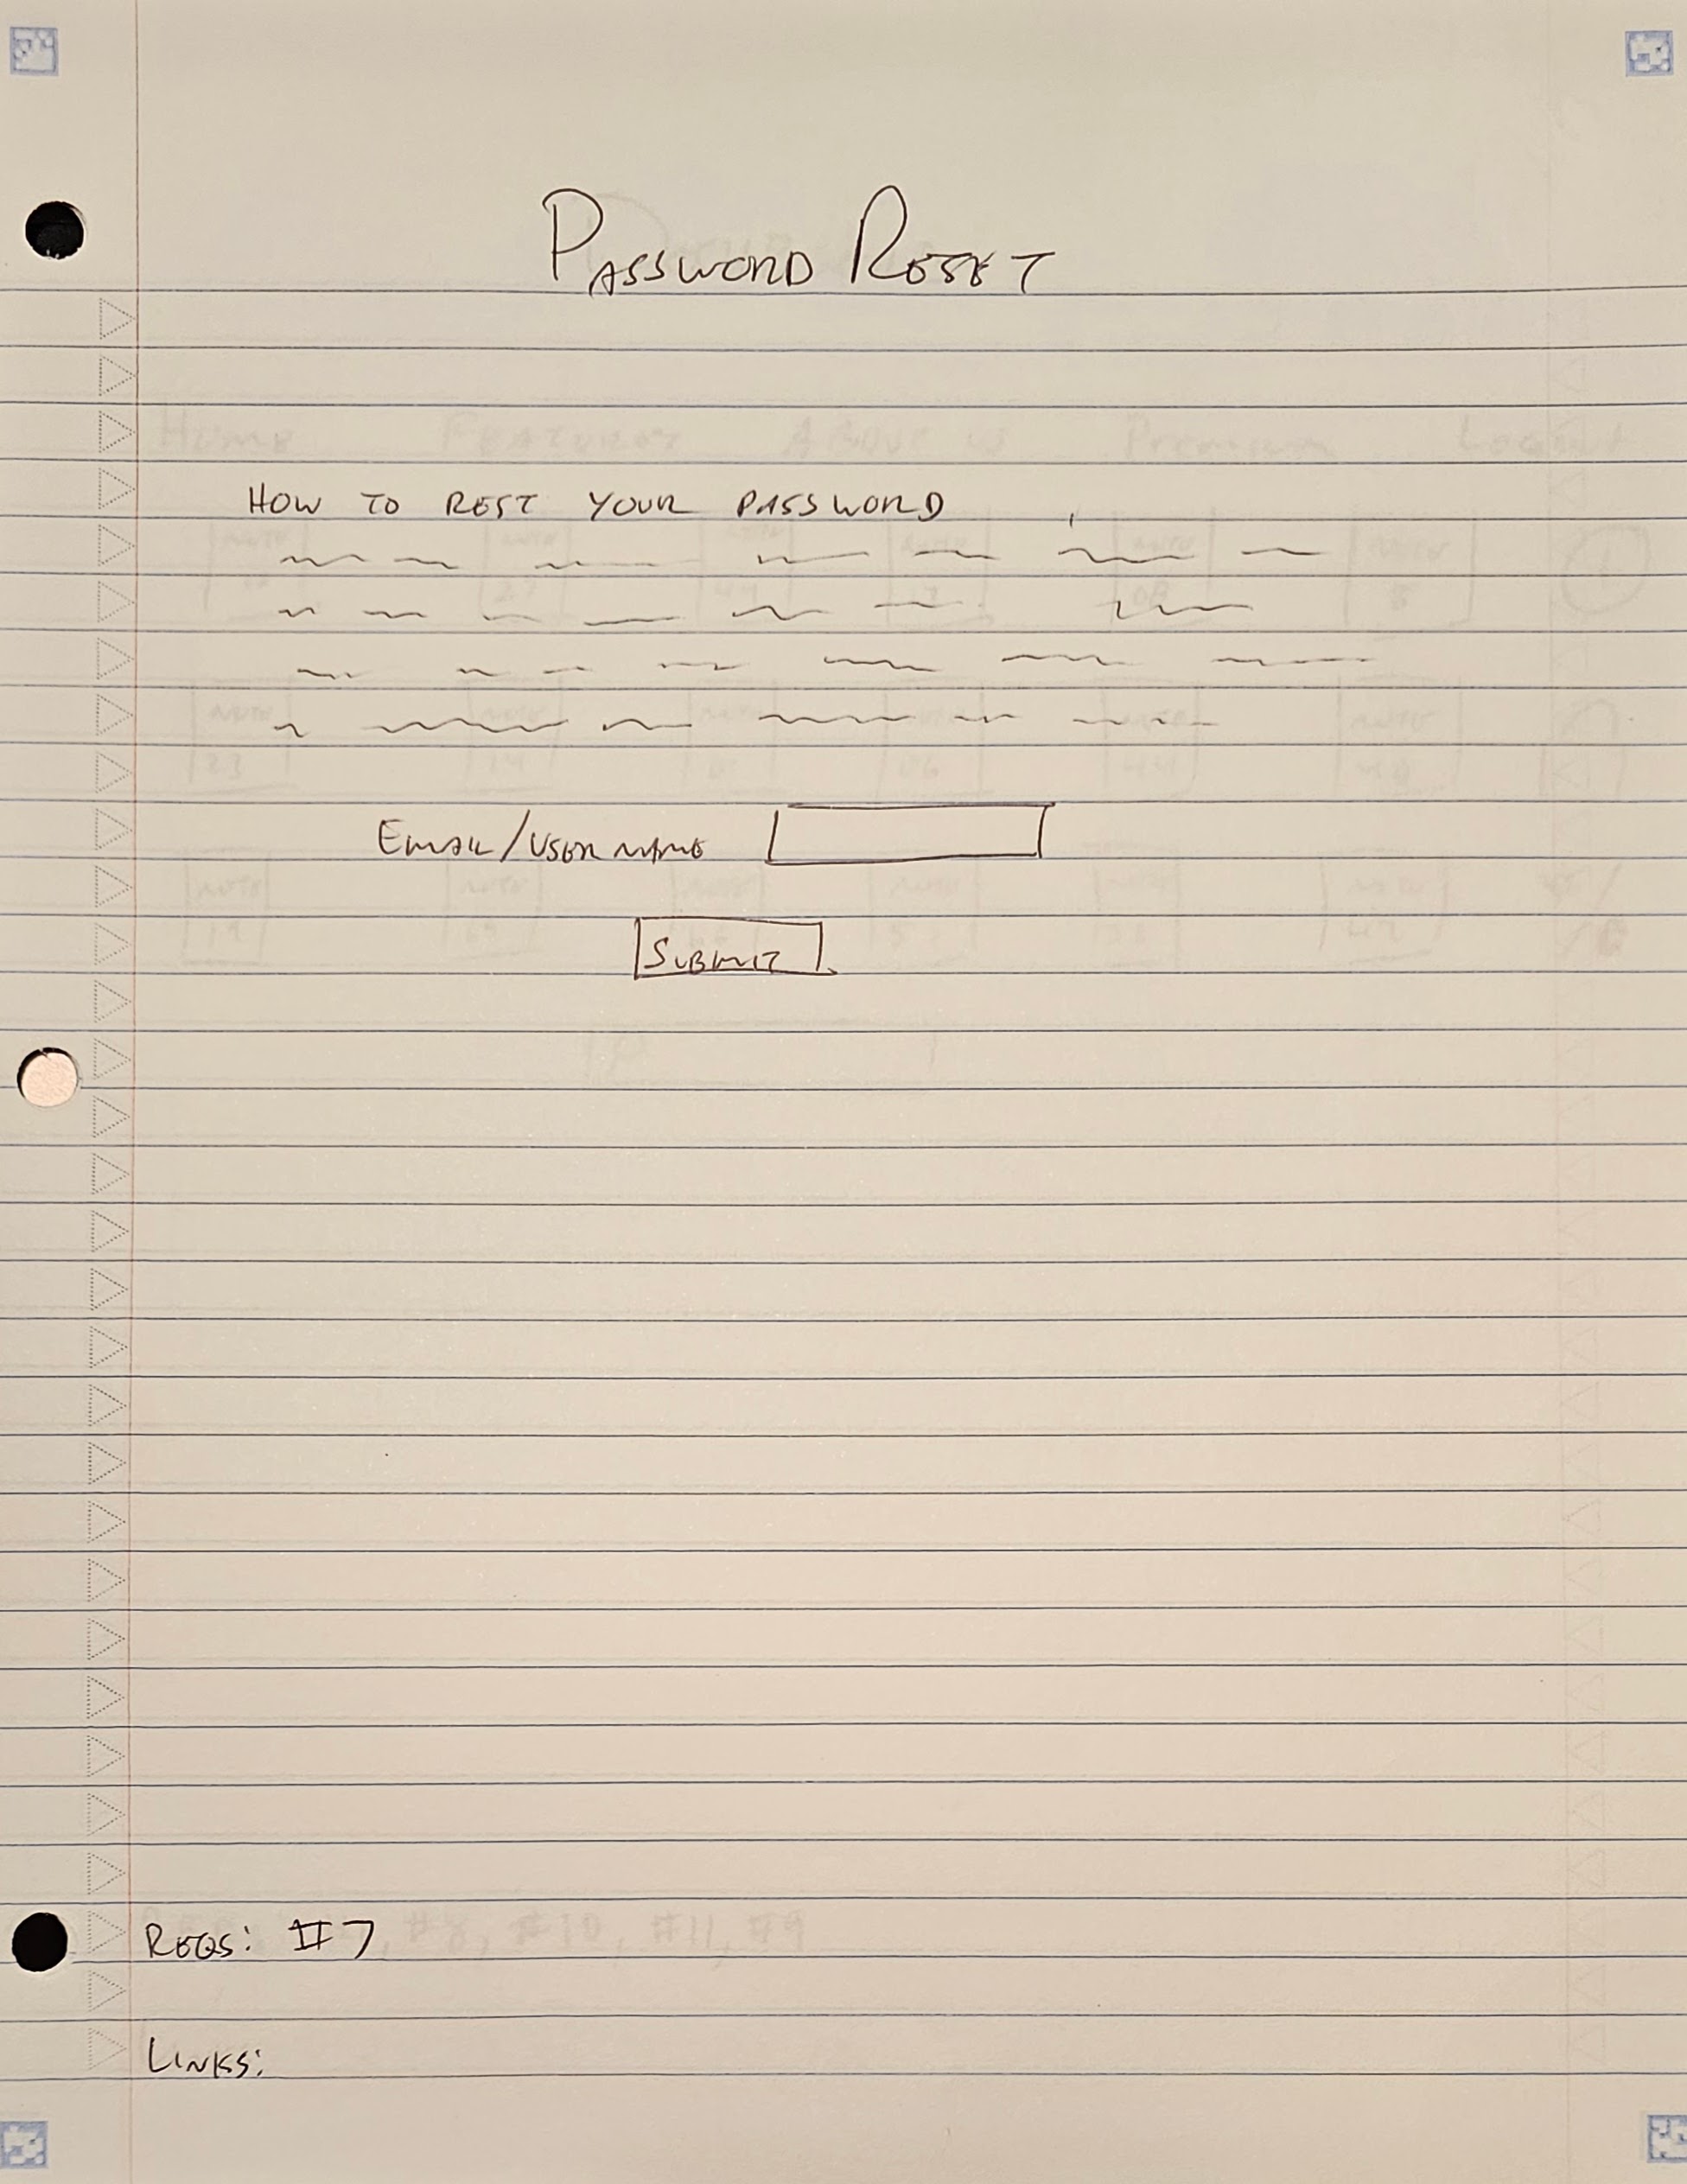 PASSWORD RESET
HOW TO REST YOUR PASSWORD
EMAIL/USERNAME
SUBMIT
REQS: #7
LINKS: